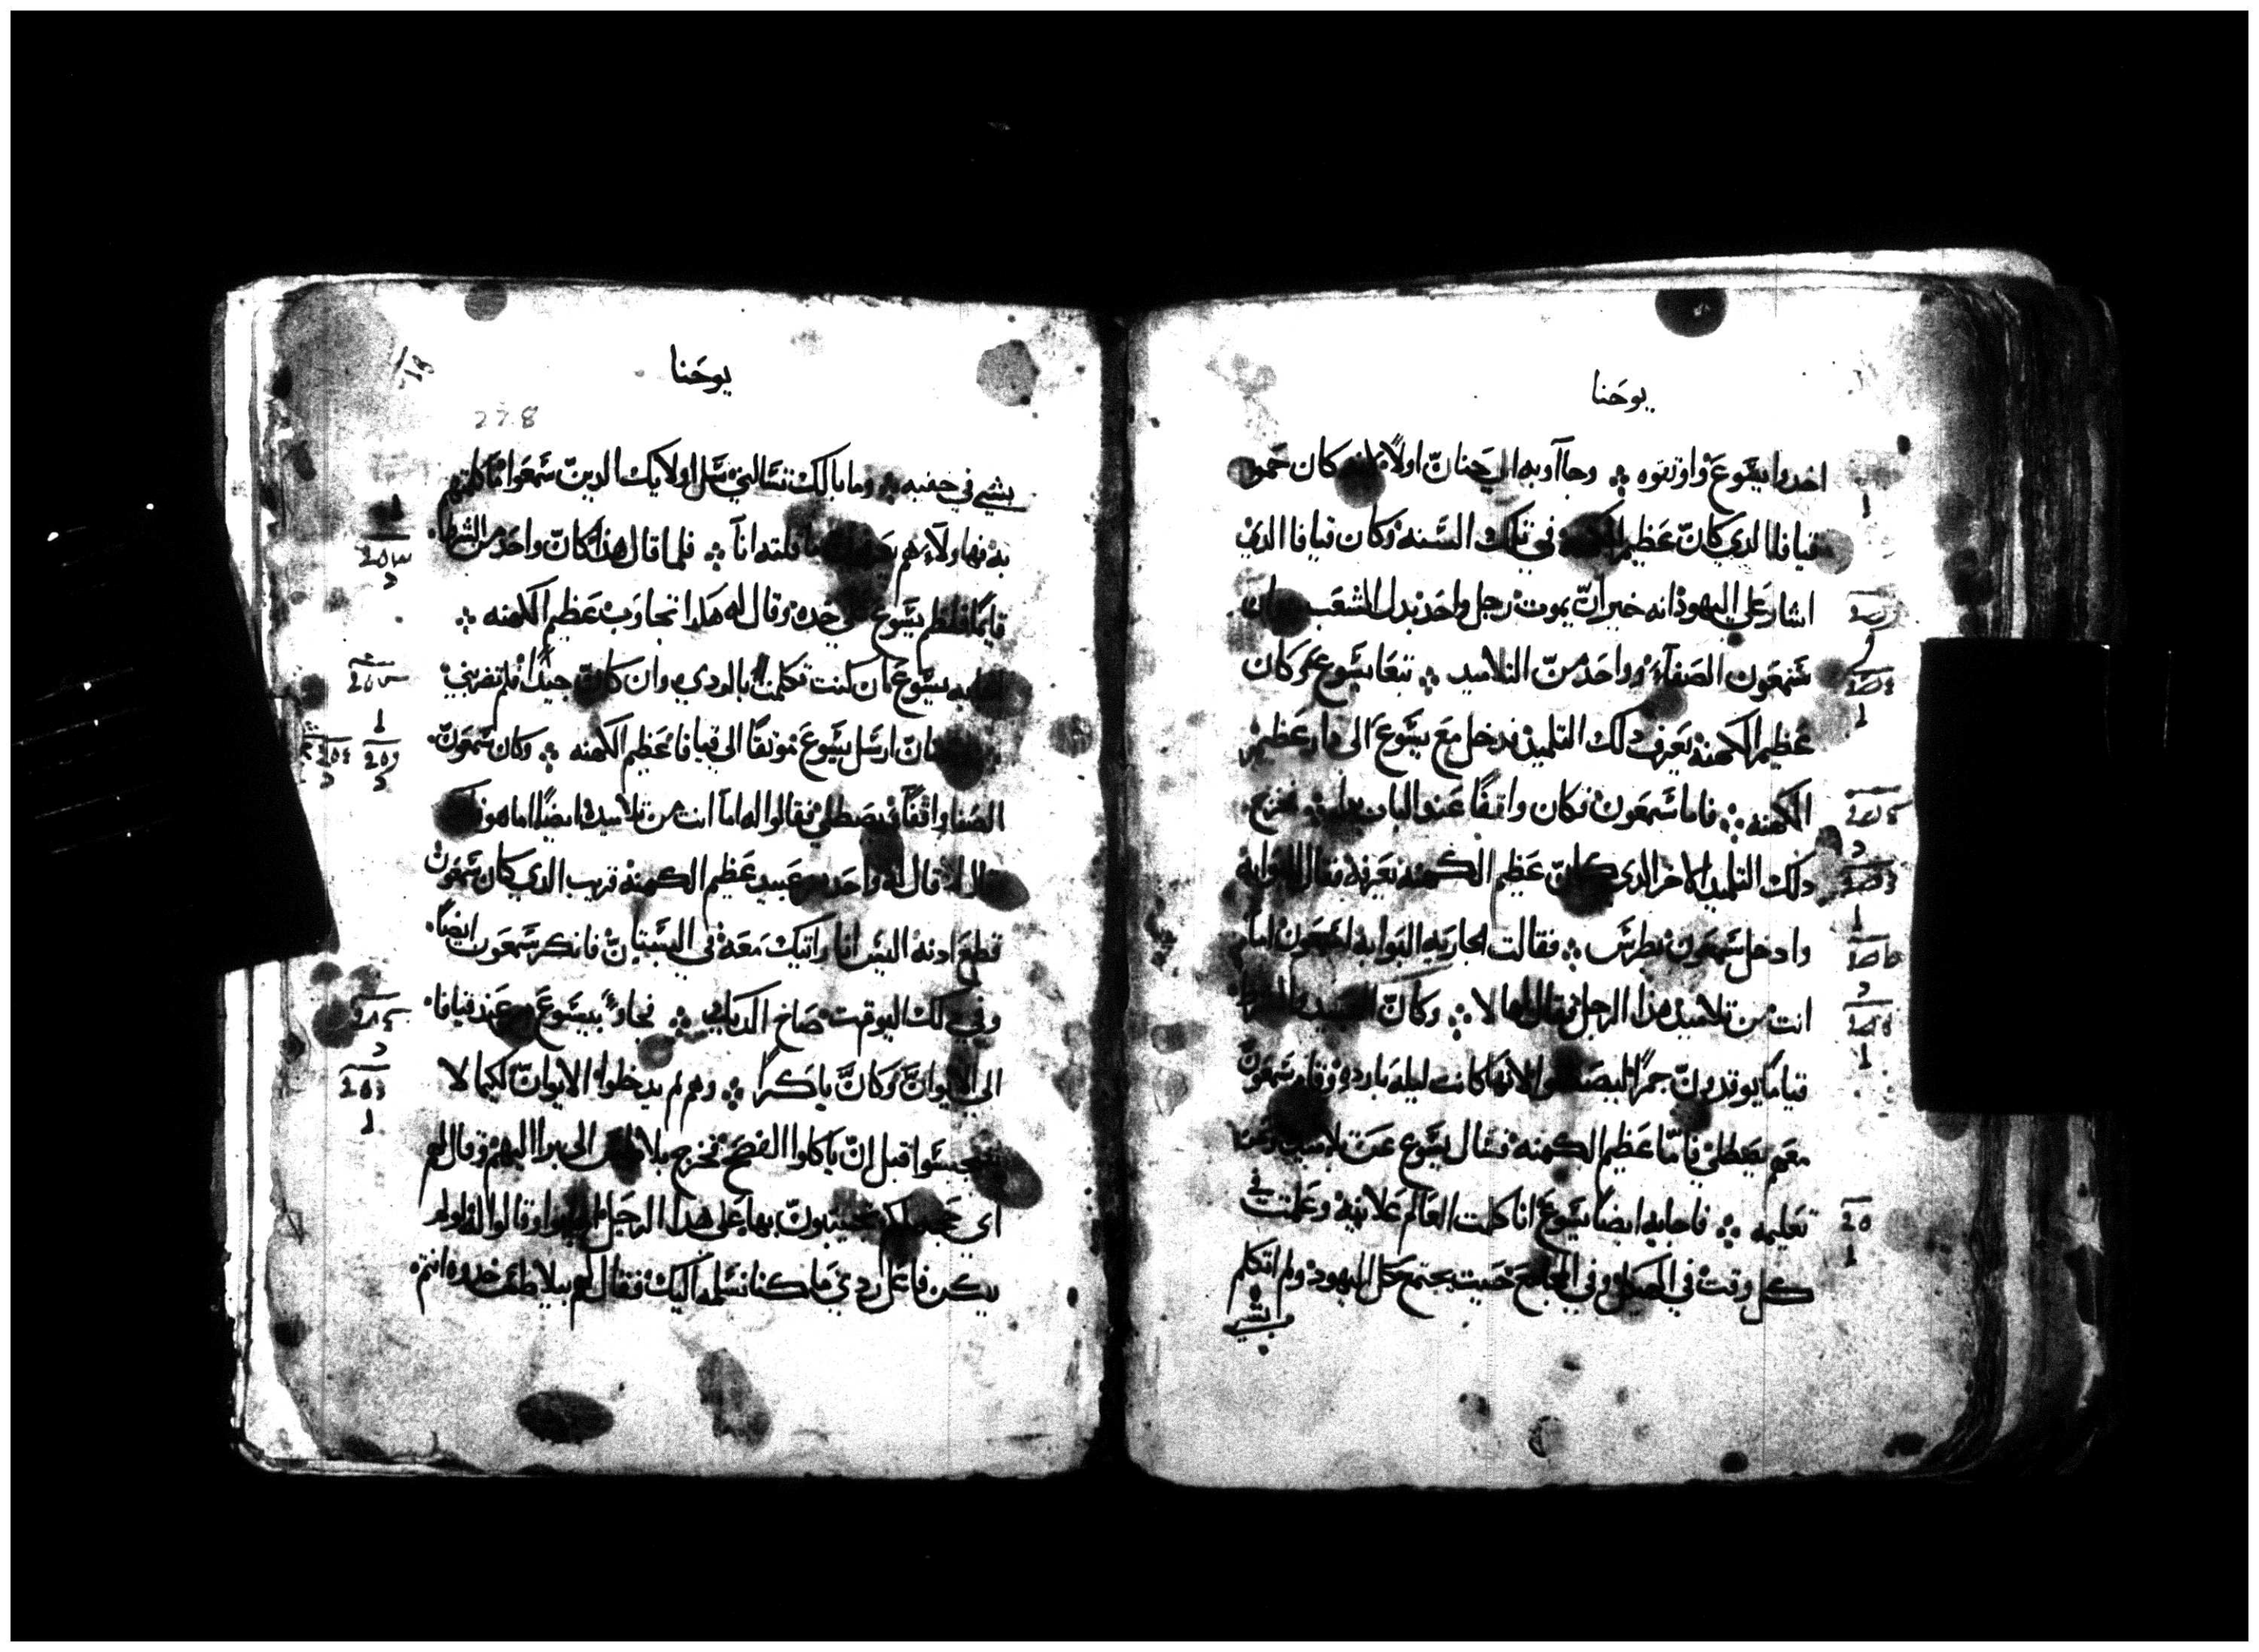 يوحنا
اخدوا يسوع واوثقوه وجاآو به الي حنان اولاً لانه كان حمو
قيافا الدي كان عظيم الكهنه في تلك السنه وكان قيافا الدي
اشار علي اليهود انه خير ان يموت رجل واحد بدل الشعب وان
شمعون الصفاء وواحد من التلاميد تبعا يسوع وكان
عظيم الكهنه يعرف دلك التلميد فدخل مع يسوع الى دار عظيم
الكهنه فاما شمعون فكان واقفًا عند الباب برا فخرج
دلك التلميد الاخر الدي كان عظيم الكهنه يعرفه فقال للبوابه
وادخل شمعون بطرس فقالت الجاريه البوابه لشمعون اما
انت من تلاميد هدا الرجل فقال لها لا وكان العبيد والشرط
قياما يوقدون جمرًا ليصطلوا لانها كانت ليله بارده وقام شمعون
معهم يصطلي فاما عظيم الكهنه فسال يسوع عن تلاميده وعن
تعليمه فاجابه ايضا يسوع انا كلمت العالم علانيه وعلمت في
كل وقت في الهيكل وفي المجامع حيت يجتمع كل اليهود ولم اتكلم
بشي
يوحنا
228
بشي في خفيه وما بالك تسالني سل اولايك الدين سمعوا ما كلمتهم
به فها ولاء هم يعرفون ما قلته انا فلما قال هدا كان واحد من الشرط
قايمًا فلطم يسوع على خده وقال له هكدا تجاوب عظيم الكهنه
اجابه يسوع ان كنت تكلمت بالردي وان كان جيدًا فلم تضربني
حنان ارسل يسوع موثقًا الي قيافا عظيم الكهنه وكان شمعون
الصفا واقفًا يصطلي فقالوا له اما انت من تلاميده ايضًا اما هو فكفر
وقال لا قال له واحد من عبيد عظيم الكهنه قريب الدي كان شمعون
قطع ادنه اليس انا رايتك معه في البستان فانكر شمعون ايضًا
وفي دلك الوقت صاح الديك فجاو بيسوع من عند قيافا
الي الايوان وكان باكرًا وهم لم يدخلوا الايوان لكيما لا
يتنجسوا قبل ان ياكلوا الفصح فخرج بلاطس الى برا اليهم وقال لهم
اي حجه لكم تجيبون بها على هدا الرجل اجابوا وقالوا له لو لم
يكن فاعل ردي ما كنا نسلمه اليك فقال لهم بيلاطس خدوه انتم